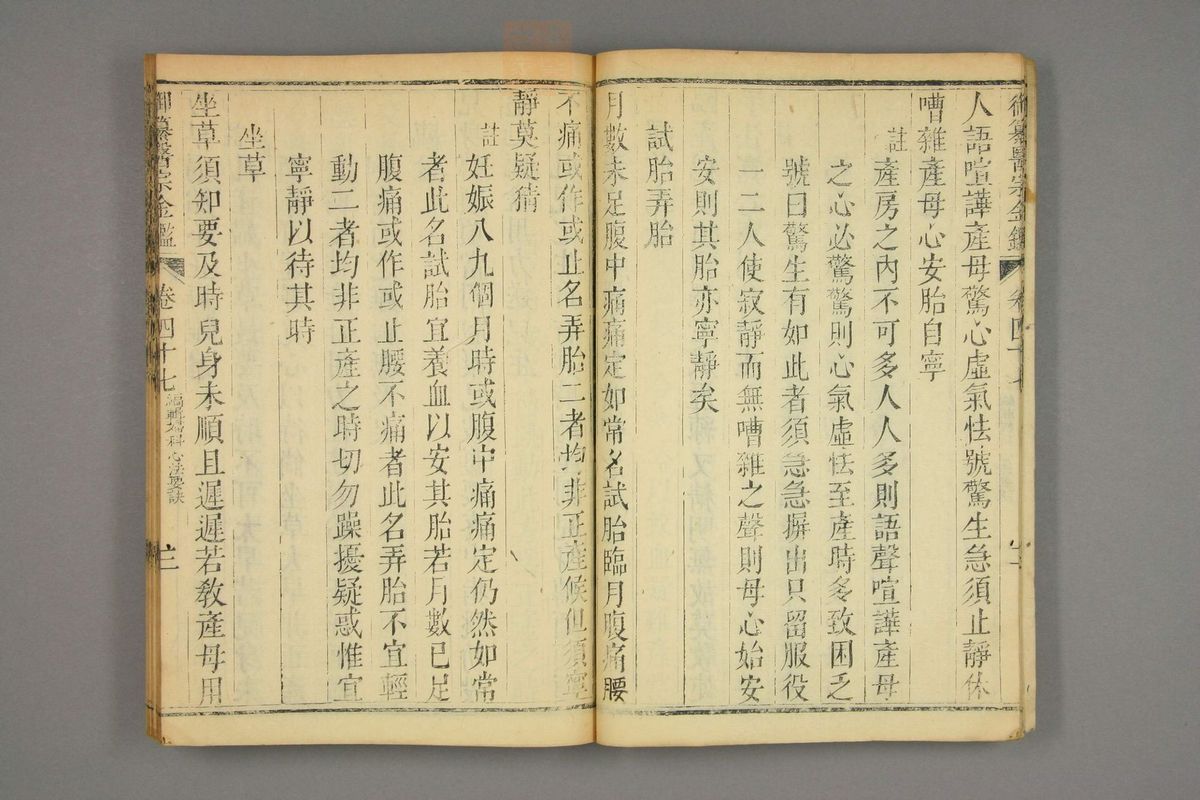 御纂醫宗金鑑
卷四十七
人語喧譁產母驚心虛氣怯號驚生急須止靜休
嘈雜產母心安胎自寧
註產房之內不可多人人多則語聲喧譁產母
之心必驚驚則心氣虛怯至產時多致困乏
號曰驚生有如此者須急急摒出只留服役
一二人使寂靜而無嘈雜之聲則母心始安
安則其胎亦寧靜矣
試胎弄胎
月數未足腹中痛痛定如常名試胎臨月腹痛腰
不痛或作或止名弄胎二者均非正產候但須寧
靜莫疑猜
註妊娠八九個月時或腹中痛痛定仍然如常
者此名試胎宜養血以安其胎若月數已足
腹痛或作或止腰不痛者此名弄胎不宜輕
動二者均非正產之時切勿躁擾疑惑惟宜
寧靜以待其時
坐草
坐草須知要及時兒身未順且遲遲若教產母用
御纂醫宗金鑑
卷四十七
編輯婦科心法要訣